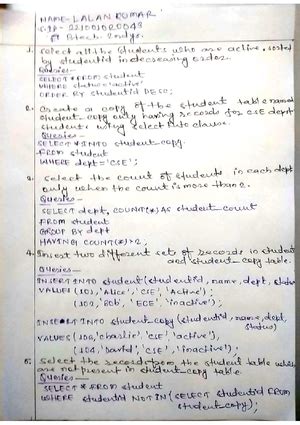 NAME- LALAN KUMAR
221001020043
1. Select all the students who are active, sorted
by studentid in decreasing order.
Queries-
SELECT * FROM student
WHERE status='active'
ORDER BY studentid DESC;
2. Create a copy of the student table named
student_copy only having records for CSE dept
students using select into clause.
Queries-
SELECT * INTO student_copy
FROM student
WHERE dept='CSE';
3. Select the count of students in each dept
only when the count is more than 2.
Queries-
SELECT dept, COUNT(*) AS student_count
FROM student
GROUP BY dept
HAVING COUNT(*)>2;
4. Insert two different sets of records in student
and student_copy table.
Queries-
INSERT INTO student(studentid, name, dept, status
VALUES (101, 'Alice', 'CSE', 'Active'),
(102, 'Bob', 'ECE', 'inactive');
INSERT INTO student_copy (studentid, name, dept,
status)
VALUES (103, 'charlie', 'CSE', 'active'),
(104, 'David', 'CSE', 'inactive');
5. Select the records from the student table which
are not present in student_copy table.
Queries-
SELECT * FROM student
WHERE studentid NOT IN (SELECT studentid FROM
student_copy);